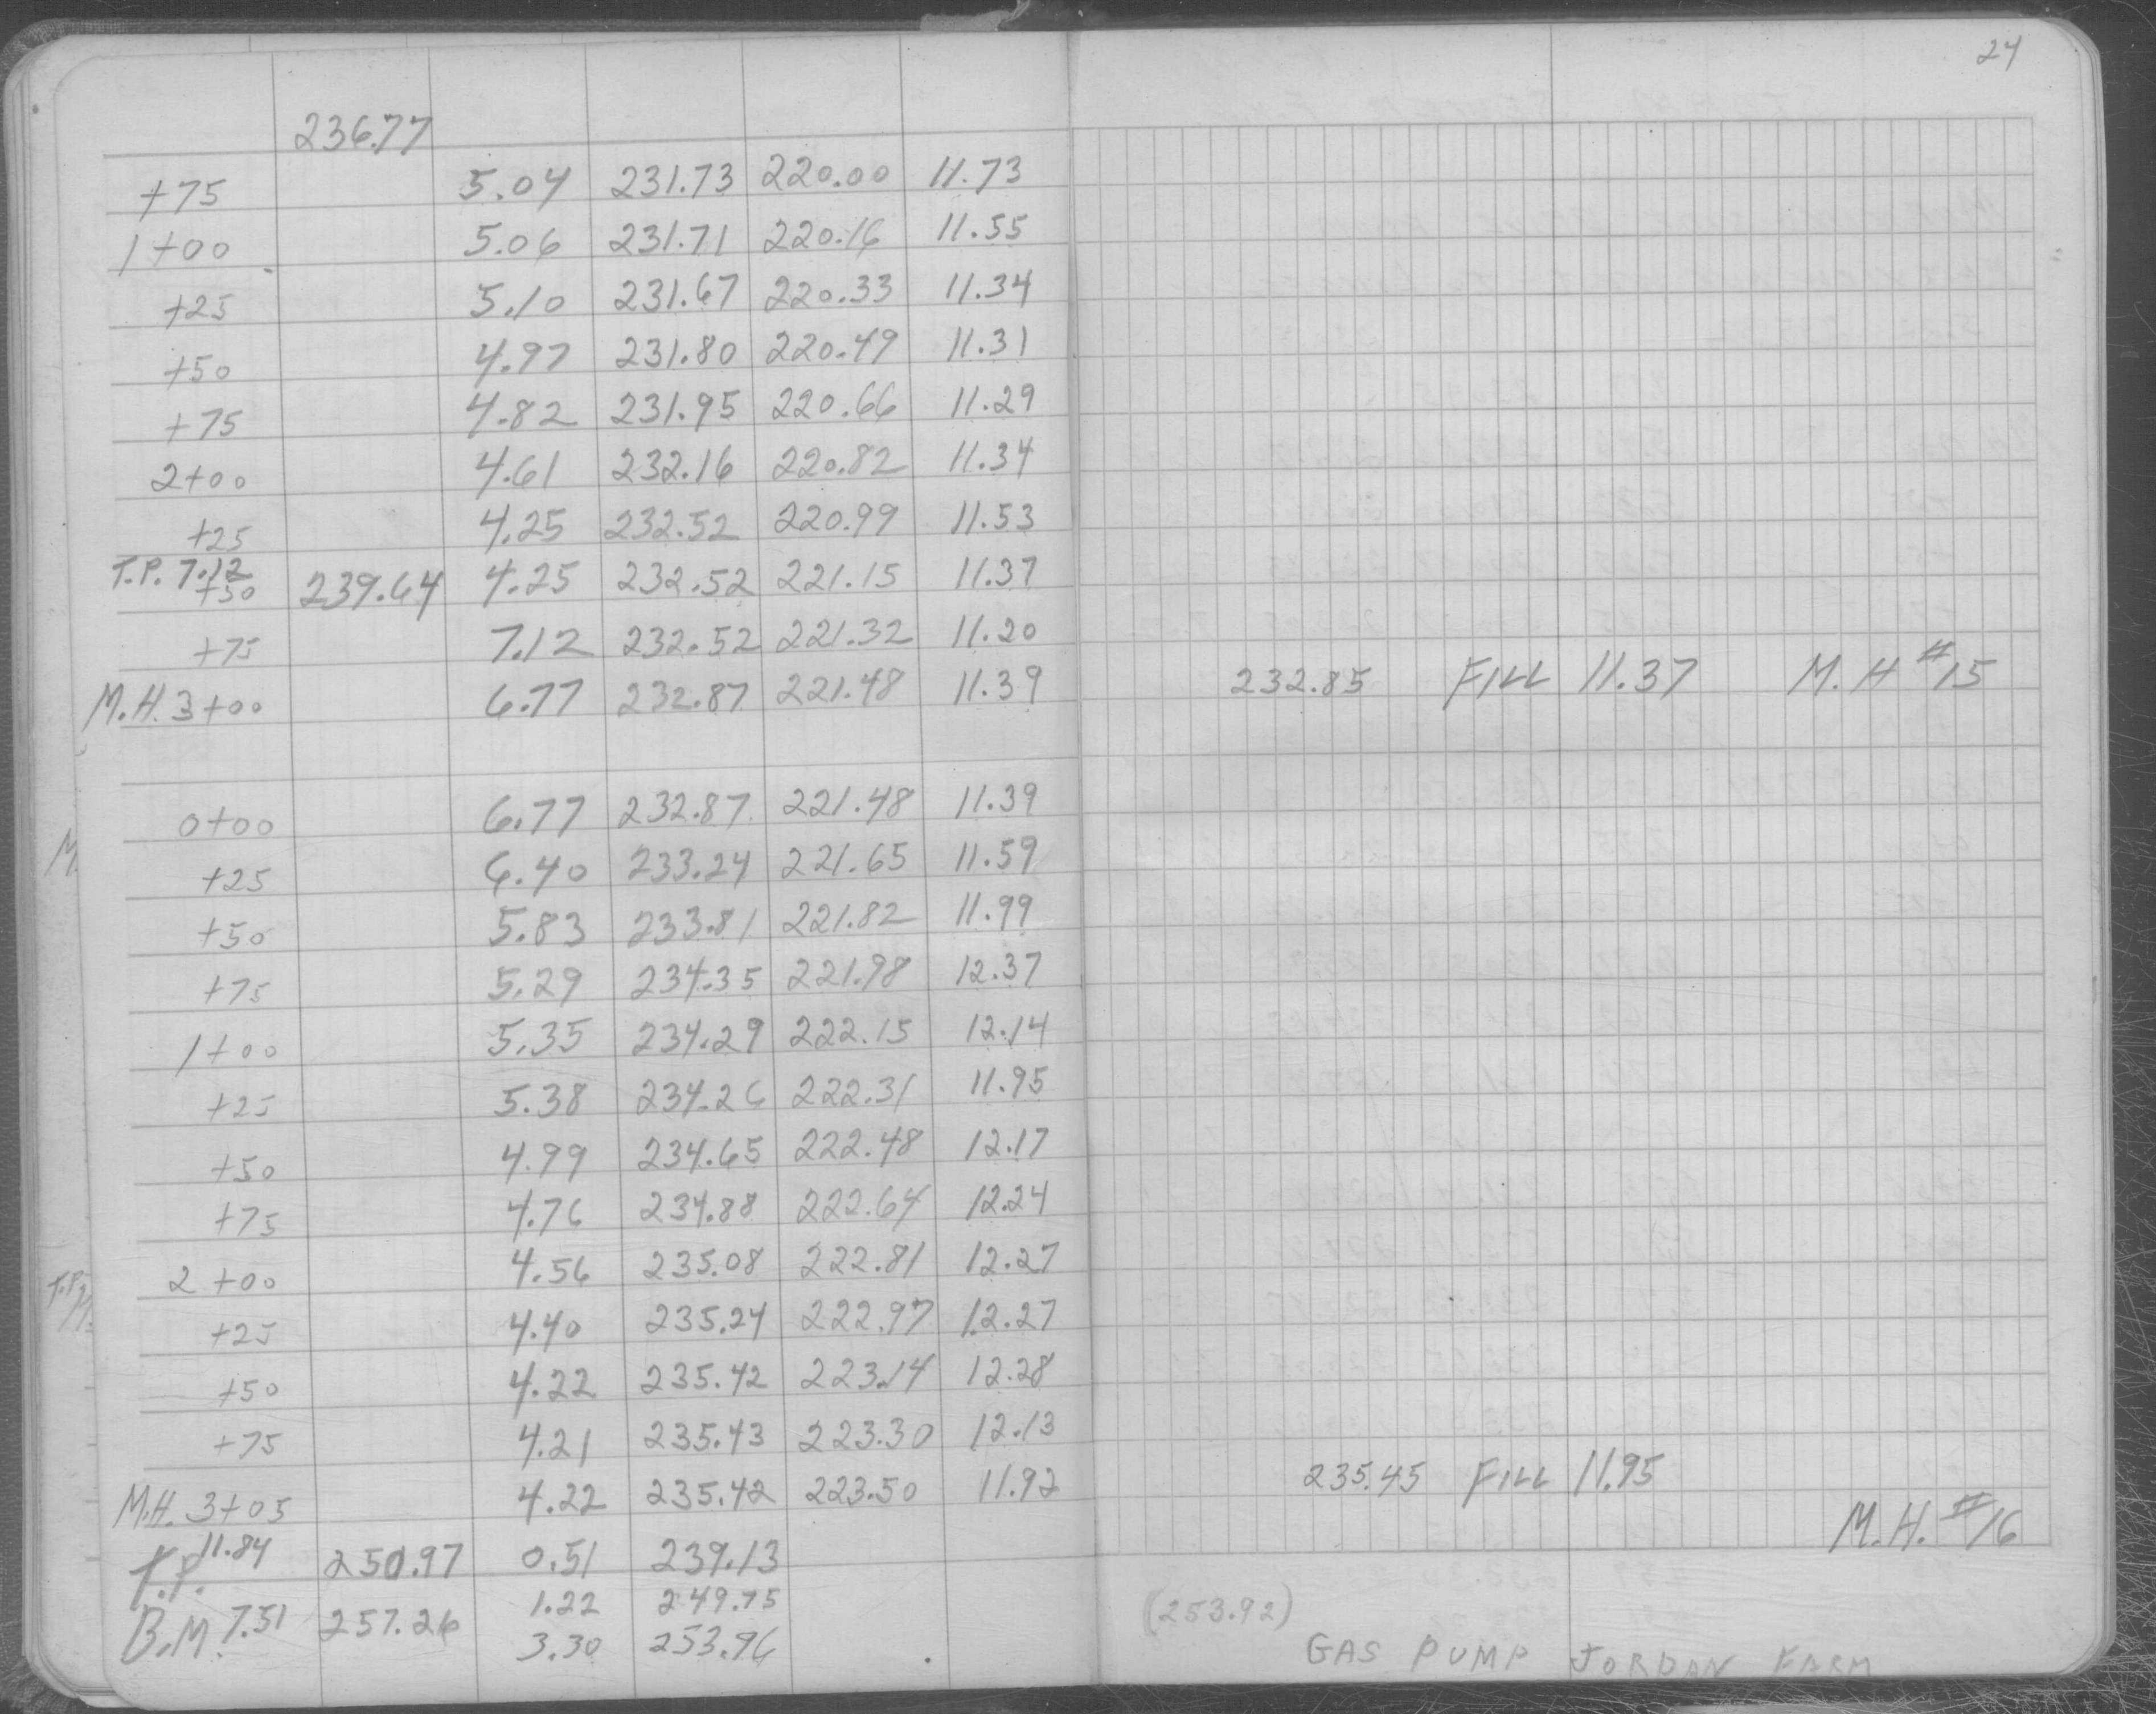 24
236.77
+75 5.04 231.73 220.00 11.73
1+00 5.06 231.71 220.16 11.55
+25 5.10 231.67 220.33 11.34
+50 4.97 231.80 220.49 11.31
+75 4.82 231.95 220.66 11.29
2+00 4.61 232.16 220.82 11.34
+25 4.25 232.52 220.99 11.53
T.P. 7.12
+50 239.64 4.25 232.52 221.15 11.37
+75 7.12 232.52 221.32 11.20
M.H. 3+00 6.77 232.87 221.48 11.39 232.85 FILL 11.37 M.H #15
0+00 6.77 232.87 221.48 11.39
+25 6.40 233.24 221.65 11.59
+50 5.83 233.81 221.82 11.99
+75 5.29 234.35 221.98 12.37
1+00 5.35 234.29 222.15 12.14
+25 5.38 234.26 222.31 11.95
+50 4.99 234.65 222.48 12.17
+75 4.76 234.88 222.64 12.24
2+00 4.56 235.08 222.81 12.27
+25 4.40 235.24 222.97 12.27
+50 4.22 235.42 223.14 12.28
+75 4.21 235.43 223.30 12.13
M.H. 3+05 4.22 235.42 223.50 11.92 235.45 FILL 11.95
M.H. #16
T.P. 11.84 250.97 0.51 239.13
B.M. 7.51 257.26 1.22 249.75 (253.92)
3.30 253.96 GAS PUMP JORDAN FARM